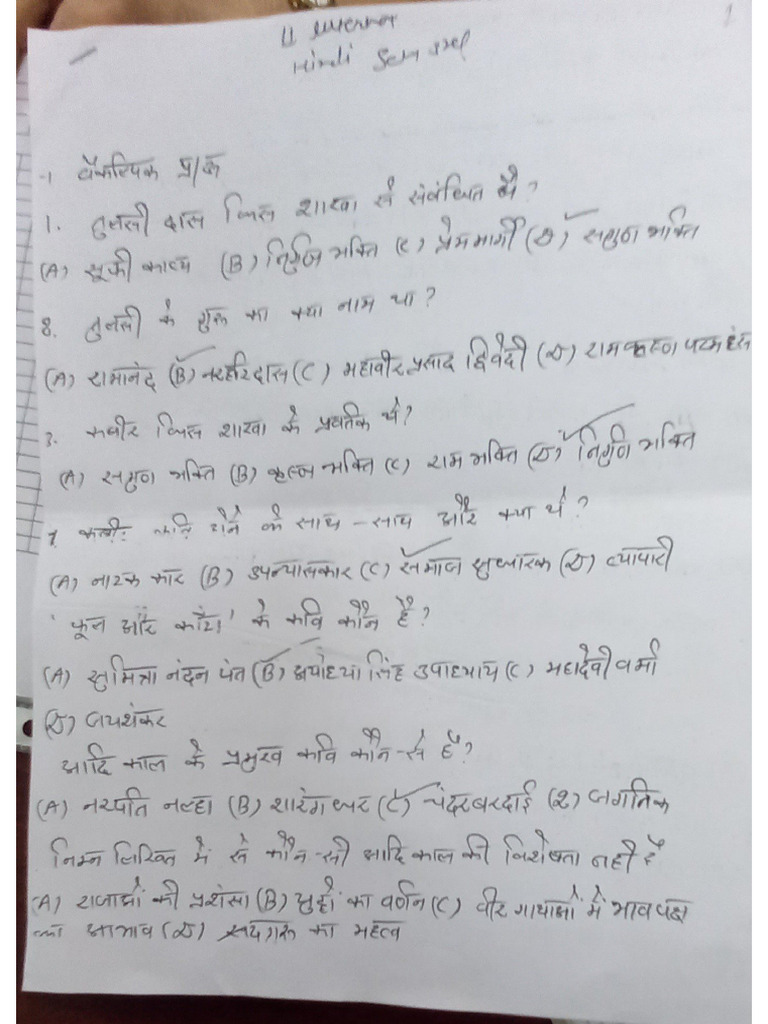 II internal
Hindi
1
-1 वैकल्पिक प्रश्न
1. तुलसी दास किस शाखा से संबंधित थे?
(A) सूफी काव्य (B) निर्गुण भक्ति (C) प्रेममार्गी (D) सगुण भक्ति
8. तुलसी के गुरु का क्या नाम था?
(A) रामानंद (B) नरहरिदास (C) महावीर प्रसाद द्विवेदी (D) रामकृष्ण परमहंस
3. कबीर किस शाखा के प्रवर्तक थे?
(A) सगुण भक्ति (B) कृष्ण भक्ति (C) राम भक्ति (D) निर्गुण भक्ति
कवि होने के साथ-साथ और क्या थे?
(A) नाटककार (B) उपन्यासकार (C) समाज सुधारक (D) व्यापारी
'फूल और काँटा' के कवि कौन हैं?
(A) सुमित्रा नंदन पंत (B) अयोध्या सिंह उपाध्याय (C) महादेवी वर्मा
(D) जयशंकर
आदि काल के प्रमुख कवि कौन-से हैं?
(A) नरपति नल्हा (B) शारंगधर (C) चंदरबरदाई (D) जगनिक
निम्न लिखित में से कौन-सी आदि काल की विशेषता नहीं है
(A) राजाओं की प्रशंसा (B) युद्धों का वर्णन (C) वीर गाथाओं में भाव पक्ष
का अभाव (D) का महत्व